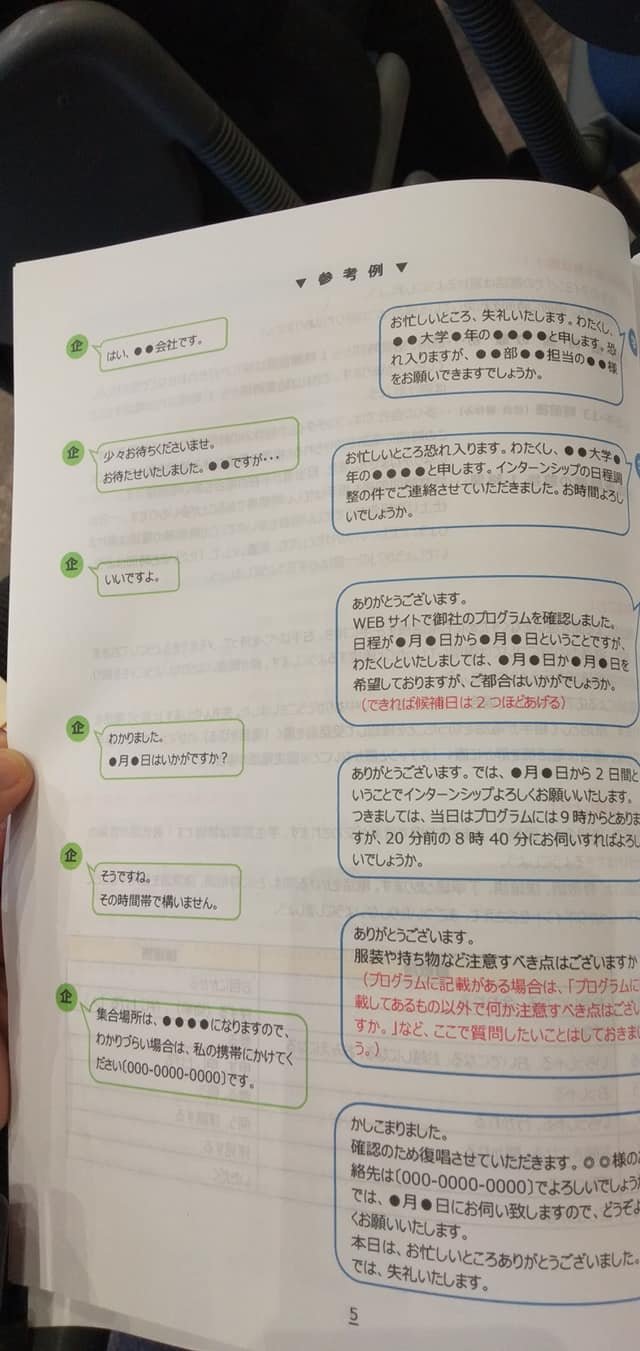 ▼ 参考例 ▼
企
はい、●●会社です。
お忙しいところ、失礼いたします。わたくし、
●●大学●年の●●●●と申します。恐
れ入りますが、●●部●●担当の●●様
をお願いできますでしょうか。
企
少々お待ちくださいませ。
お待たせいたしました。●●ですが・・・
お忙しいところ恐れ入ります。わたくし、●●大学●
年の●●●●と申します。インターンシップの日程調
整の件でご連絡させていただきました。お時間よろし
いでしょうか。
企
いいですよ。
ありがとうございます。
WEBサイトで御社のプログラムを確認しました。
日程が●月●日から●月●日ということですが、
わたくしといたしましては、●月●日か●月●日を
希望しておりますが、ご都合はいかがでしょうか。
（できれば候補日は2つほどあげる）
企
わかりました。
●月●日はいかがですか？
ありがとうございます。では、●月●日から2日間と
いうことでインターンシップよろしくお願いいたします。
つきましては、当日はプログラムには9時からとありま
すが、20分前の8時40分にお伺いすればよろし
いでしょうか。
企
そうですね。
その時間帯で構いません。
ありがとうございます。
服装や持ち物など注意すべき点はございますか
（プログラムに記載がある場合は、「プログラムに
載してあるもの以外で何か注意すべき点はござい
ますか。」など、ここで質問したいことはしておきま
う。）
企
集合場所は、●●●●になりますので、
わかりづらい場合は、私の携帯にかけてく
ださい〔000-0000-0000〕です。
かしこまりました。
確認のため復唱させていただきます。◎◎様の
絡先は〔000-0000-0000〕でよろしいでしょう
では、●月●日にお伺い致しますので、どうぞよ
くお願いいたします。
本日は、お忙しいところありがとうございました。
では、失礼いたします。
5